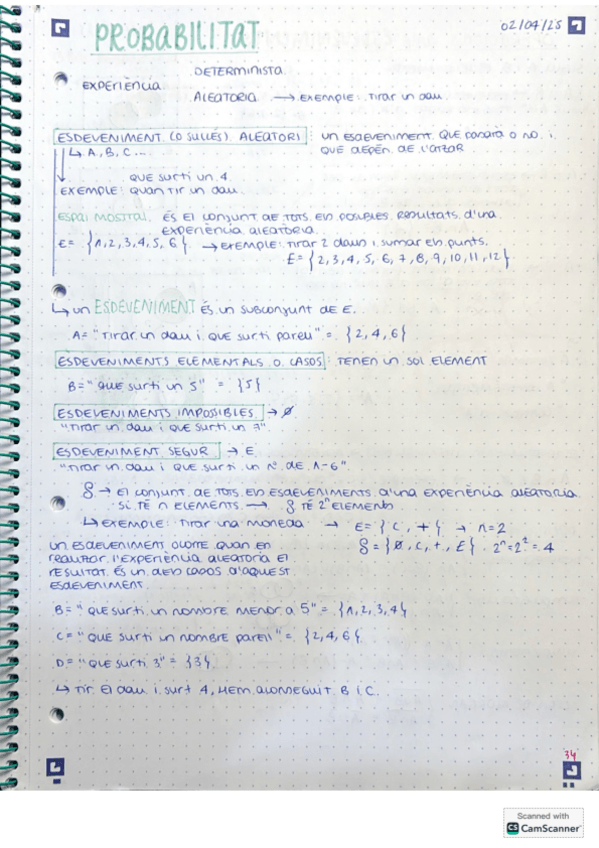 PROBABILITAT
02/04/25
DETERMINISTA
EXPERIÈNCIA
ALEATORIA → EXEMPLE: Tirar un dau
ESDEVENIMENT (O SUCCÉS) ALEATORI: un esdeveniment que passarà o no i
que depèn de l'atzar
↳ A, B, C...
que surti un 4
EXEMPLE: quan tir un dau
ESPAI MOSTRAL: És el conjunt de tots els possibles resultats d'una
experiència aleatòria.
E = {1,2,3,4,5,6} → exemple: tirar 2 daus i sumar els punts.
E = {2,3,4,5,6,7,8,9,10,11,12}
↳ un ESDEVENIMENT És un subconjunt de E.
A= "Tirar un dau i que surti parell" = {2,4,6}
ESDEVENIMENTS ELEMENTALS O CASOS: TENEN un sol element
B= "que surti un 5" = {5}
ESDEVENIMENTS IMPOSSIBLES → ∅
"Tirar un dau i que surti un 7"
ESDEVENIMENT SEGUR → E
"Tirar un dau i que surti un nº de 1-6"
S → El conjunt de tots els esdeveniments d'una experiència aleatoria
si té n elements → S té 2ⁿ elements
↳ exemple: Tirar una moneda → E= {C, +} → n=2
S = {∅, C, +, E} 2ⁿ=2²=4
un esdeveniment ocorre quan en
realitzar l'experiència aleatoria el
resultat és un dels casos d'aquest
esdeveniment
B= "que surti un nombre menor a 5" = {1,2,3,4}
C= "que surti un nombre parell" = {2,4,6}
D= "que surti 3" = {3}
↳ Tir el dau i surt 4, hem aconseguit B i C.
34
Scanned with
CS CamScanner